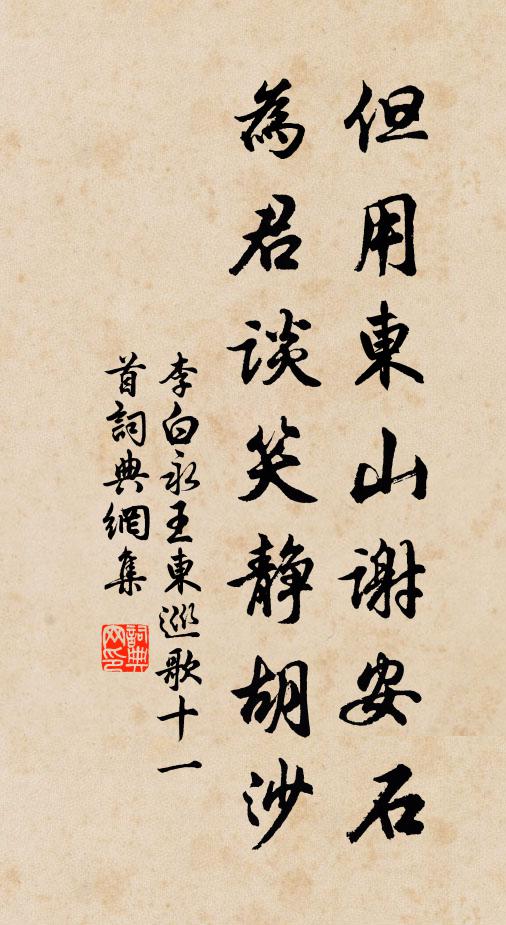 但用東山謝安石
為君談笑静胡沙
李白永王東巡歌十一
首詞典網集
詞典
网印